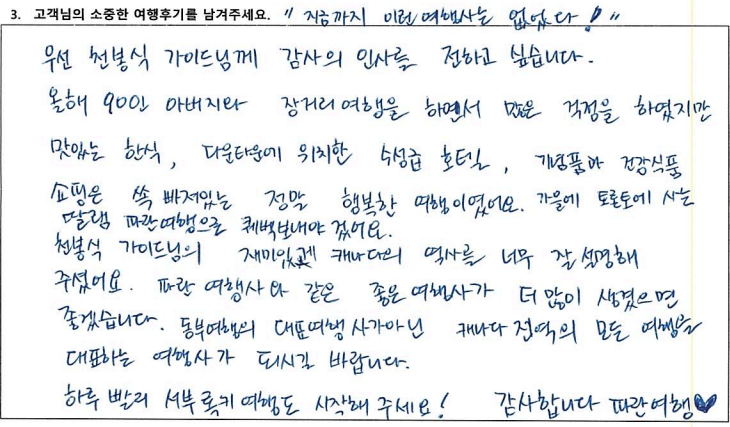 3. 고객님의 소중한 여행후기를 남겨주세요. " 지금까지 이런 여행사는 없었다! "
우선 천봉식 가이드님께 감사의 인사를 전하고 싶습니다.
올해 90인 아버지와 장거리 여행을 하면서 많은 걱정을 하였지만
맛있는 한식, 다운타운에 위치한 수성급 호텔, 기념품이나 건강식품
쇼핑은 쏙 빠져있는 정말 행복한 여행이였어요. 가을에 토론토에 사는
딸램 파란여행으로 퀘벡보내야 겠어요.
천봉식 가이드님의 재미있게 캐나다의 역사를 너무 잘 설명해
주셨어요. 파란 여행사와 같은 좋은 여행사가 더 많이 생겼으면
좋겠습니다. 동부여행의 대표여행사가아닌 캐나다 전역의 모든 여행을
대표하는 여행사가 되시길 바랍니다.
하루 빨리 서부 록키 여행도 시작해 주세요! 감사합니다 파란여행♥